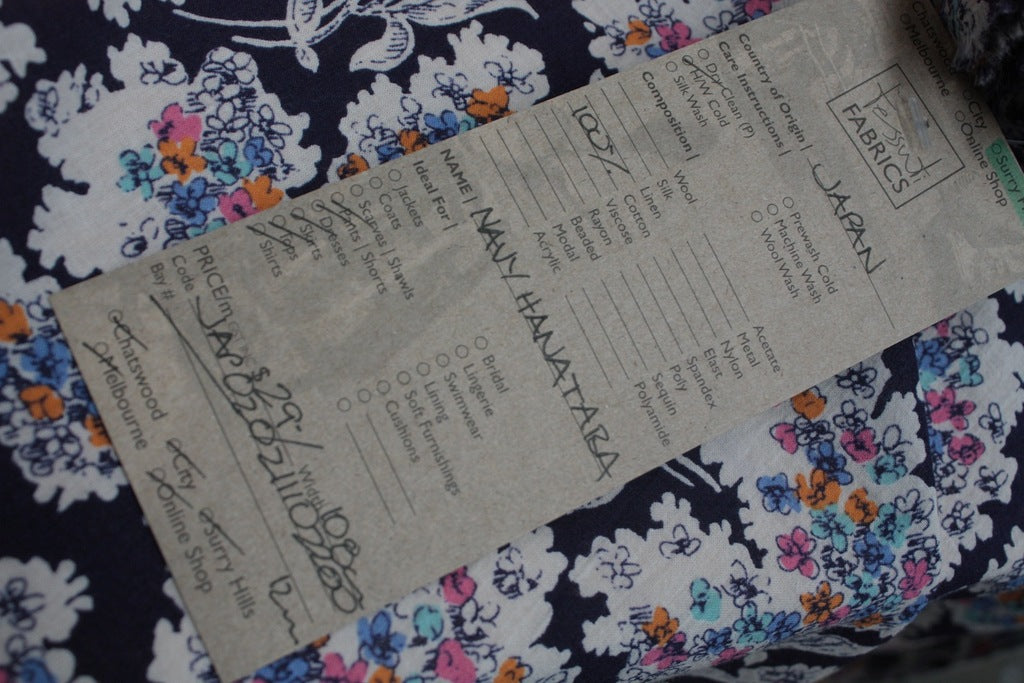 Chatswood City Surry
Melbourne Online Shop
Tessuti
FABRICS
Country of Origin | JAPAN
Care Instructions |
Dry Clean (P) Prewash Cold
H/W Cold Machine Wash
Silk Wash Wool Wash
Composition |
Wool Acetate
Silk Metal
Linen Nylon
100% Cotton Elast
Viscose Spandex
Rayon Poly
Beaded Sequin
Modal Polyamide
Acrylic
NAME | NAVY HANATABA
Ideal For |
Jackets Bridal
Coats Lingerie
Scarves | Shawls Swimwear
Pants | Shorts Lining
Dresses Soft Furnishings
Skirt Cushions
Tops
Shirts
PRICE/m $29/- Width 108cm
Code JAP
Bay # 12m
Chatswood City Surry Hills
Melbourne Online Shop